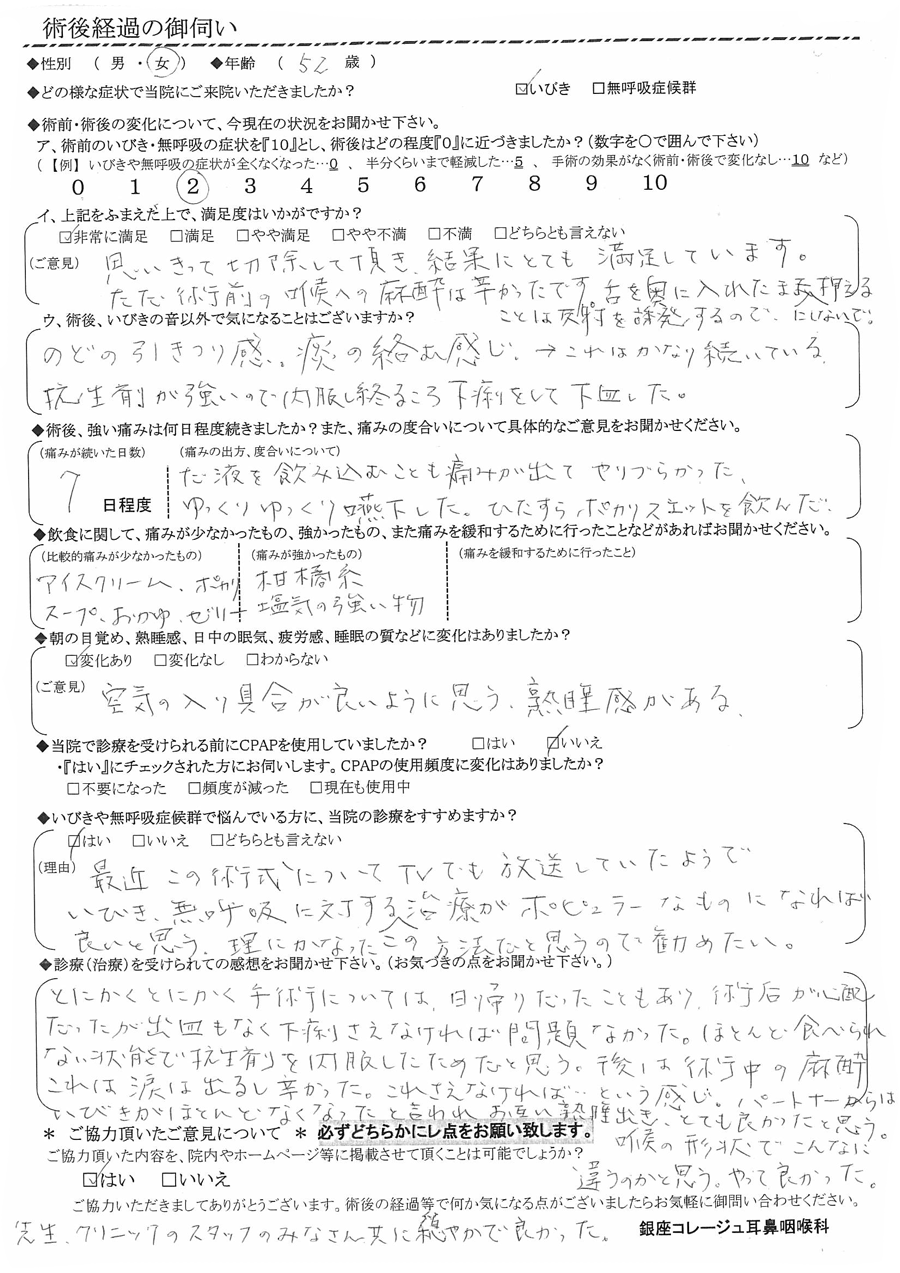 術後経過の御伺い
◆性別 ( 男 ・ 女 ) ◆年齢 ( 52 歳 )
◆どの様な症状で当院にご来院いただきましたか? ☑いびき □無呼吸症候群
◆術前・術後の変化について、今現在の状況をお聞かせ下さい。
ア、術前のいびき・無呼吸の症状を『10』とし、術後はどの程度『0』に近づきましたか?(数字を○で囲んで下さい)
(【例】いびきや無呼吸の症状が全くなくなった…0 、 半分くらいまで軽減した…5 、 手術の効果がなく術前・術後で変化なし…10 など)
0 1 2 3 4 5 6 7 8 9 10
イ、上記をふまえた上で、満足度はいかがですか?
☑非常に満足 □満足 □やや満足 □やや不満 □不満 □どちらとも言えない
(ご意見) 思いきって切除して頂き、結果にとても満足しています。
ただ術前の喉への麻酔は辛かったです。舌を奥に入れたまま押える
ことは反射を誘発するので、にしないで。
ウ、術後、いびきの音以外で気になることはございますか?
のどの引きつり感、痰の絡む感じ、→これはかなり続いている。
抗生剤が強いので内服し終るころ下痢をして下血した。
◆術後、強い痛みは何日程度続きましたか?また、痛みの度合いについて具体的なご意見をお聞かせください。
(痛みが続いた日数) (痛みの出方、度合いについて)
7 日程度
だ液を飲み込むことも痛みが出てやりづらかった、
ゆっくりゆっくり嚥下した。ひたすらポカリスエットを飲んだ。
◆飲食に関して、痛みが少なかったもの、強かったもの、また痛みを緩和するために行ったことなどがあればお聞かせください。
(比較的痛みが少なかったもの) (痛みが強かったもの) (痛みを緩和するために行ったこと)
アイスクリーム、ポカリ 柑橘系
スープ、おかゆ、ゼリー 塩気の強い物
◆朝の目覚め、熟睡感、日中の眠気、疲労感、睡眠の質などに変化はありましたか?
☑変化あり □変化なし □わからない
(ご意見) 空気の入り具合が良いように思う、熟睡感がある、
◆当院で診療を受けられる前にCPAPを使用していましたか? □はい ☑いいえ
・『はい』にチェックされた方にお伺いします。CPAPの使用頻度に変化はありましたか?
□不要になった □頻度が減った □現在も使用中
◆いびきや無呼吸症候群で悩んでいる方に、当院の診療をすすめますか?
☑はい □いいえ □どちらとも言えない
(理由) 最近この術式についてTVでも放送していたようで
いびき、無呼吸に対する治療がポピュラーなものになれば
良いと思う、理にかなったこの方法だと思うので勧めたい。
◆診療(治療)を受けられての感想をお聞かせ下さい。(お気づきの点をお聞かせ下さい。)
とにかくとにかく手術については、日帰りだったこともあり、術后が心配
だったが出血もなく下痢さえなければ問題なかった。ほとんど食べられ
ない状態で抗生剤を内服したためだと思う。後は術中の麻酔
これは涙は出るし辛かった。これさえなければ…という感じ。パートナーからは
いびきがほとんどなくなったと言われお互い熟睡出き、とても良かったと思う。
喉の形状でこんなに
違うのかと思う。やって良かった。
* ご協力頂いたご意見について * 必ずどちらかにレ点をお願い致します。
ご協力頂いた内容を、院内やホームページ等に掲載させて頂くことは可能でしょうか?
☑はい □いいえ
ご協力いただきましてありがとうございます。術後の経過等で何か気になる点がございましたらお気軽に御問い合わせください。
先生、クリニックのスタッフのみなさん共に穏やかで良かった。
銀座コレージュ耳鼻咽喉科